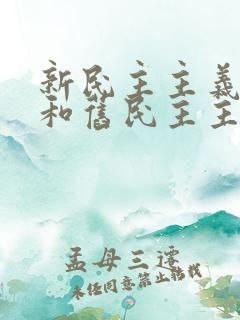 新民主主義
和舊民主主
孟母三遷
未经同意禁止转载